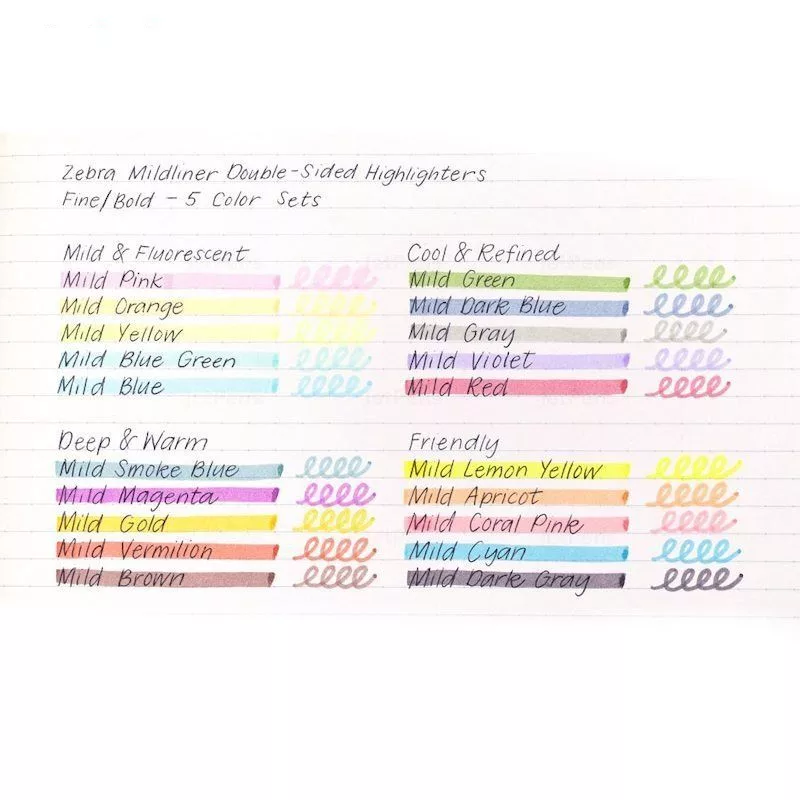 Zebra Mildliner Double-Sided Highlighters
Fine/Bold - 5 Color Sets
Mild & Fluorescent
Mild Pink
Mild Orange
Mild Yellow
Mild Blue Green
Mild Blue
Cool & Refined
Mild Green
Mild Dark Blue
Mild Gray
Mild Violet
Mild Red
Deep & Warm
Mild Smoke Blue
Mild Magenta
Mild Gold
Mild Vermilion
Mild Brown
Friendly
Mild Lemon Yellow
Mild Apricot
Mild Coral Pink
Mild Cyan
Mild Dark Gray